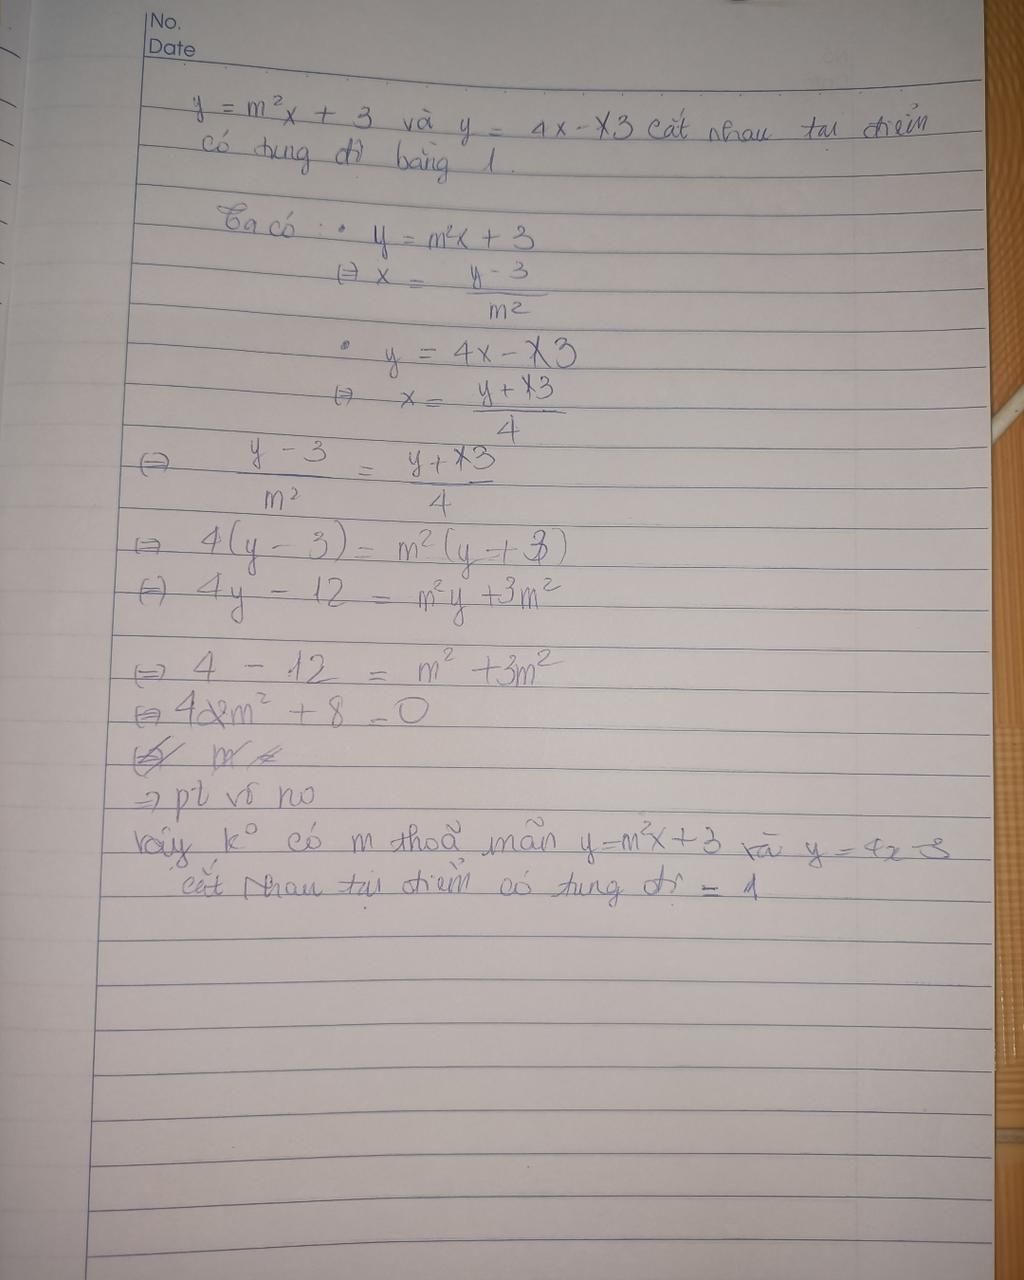 No.
Date
y = m²x + 3 và y = 4x - 3 cắt nhau tại điểm
có tung độ bằng 1.
Ta có : • y = m²x + 3
⇔ x = \frac{y - 3}{m²}
• y = 4x - 3
⇔ x = \frac{y + 3}{4}
⇔ \frac{y - 3}{m²} = \frac{y + 3}{4}
⇔ 4(y - 3) = m²(y + 3)
⇔ 4y - 12 = m²y + 3m²
⇔ 4 - 12 = m² + 3m²
⇔ 4m² + 8 = 0
⇒ pt vô no
Vậy k° có m thoã mãn y = m²x + 3 và y = 4x - 3
cắt nhau tại điểm có tung độ = 1